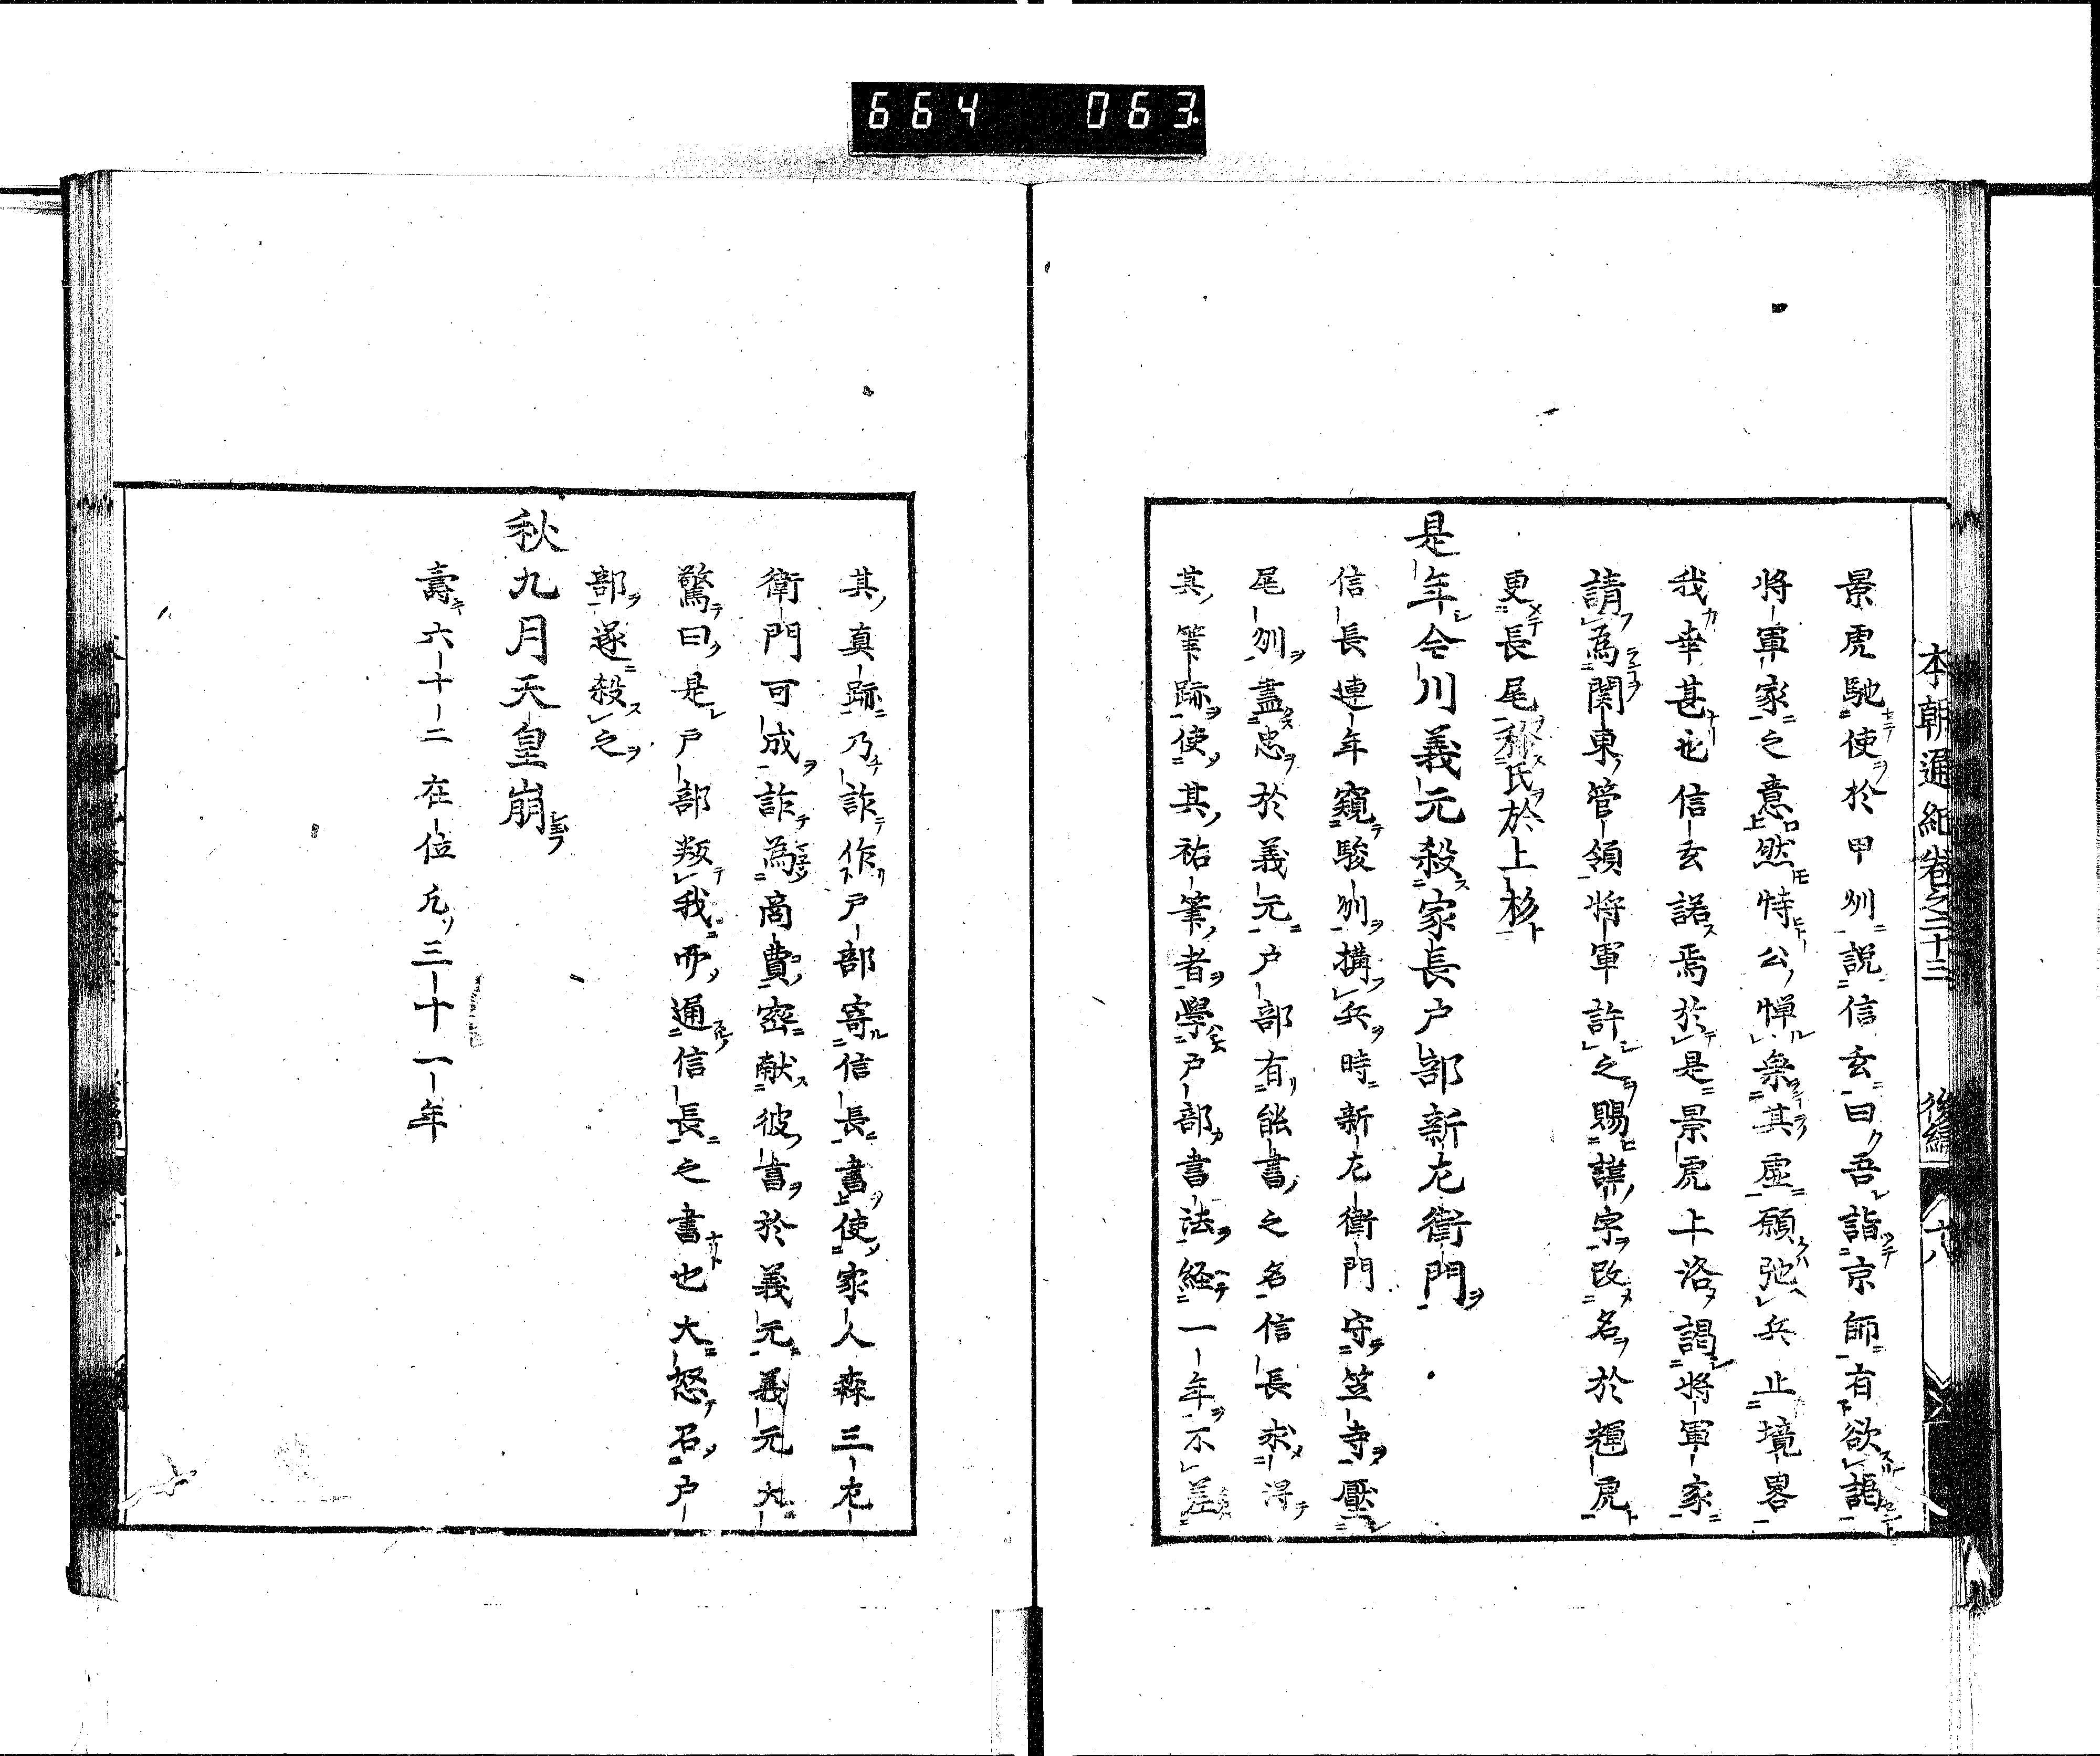 664 063
本朝通紀卷之二十三 後編 六
景虎馳使於甲州說信玄曰吾詣京師有欲謁
將軍家之意然恃公憚無其虛願弛兵止境畧
我幸甚也信玄諾焉於是景虎上洛謁將軍家
請為関東管領將軍許之賜諱字改名於輝虎
更長尾稱氏於上杉
是年今川義元殺家長戶部新左衛門
信長連年窺駿州搆兵時新左衛門守笠寺壓
尾州盡忠於義元戶部有能書之名信長求得
其筆跡使其祐筆者學戶部書法経一年不差
其真跡乃詐作戶部寄信長書使家人森三左
衛門可成詐為商賣密献彼書於義元義元大
驚曰是戶部叛我而通信長之書也大怒召戶
部遂殺之
秋九月天皇崩
壽六十二在位凡三十一年